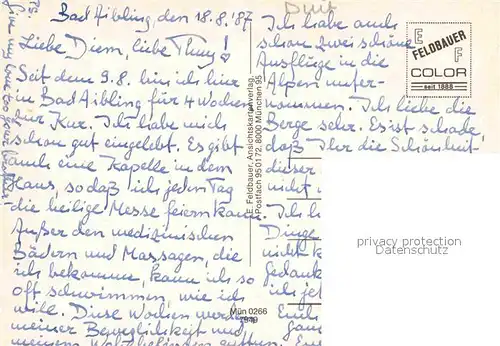 Bad Aibling, den 18.8.'87
Liebe Diem, liebe Thuy!
Seit dem 9.8. bin ich hier
in Bad Aibling für 4 Wochen
zur Kur. Ich habe mich
schon gut eingelebt. Es gibt
auch eine Kapelle in dem
Haus, so daß ich jeden Tag
die heilige Messe feiern kann.
Außer den medizinischen
Bädern und Massagen, die
ich bekomme, kann ich so
oft schwimmen, wie ich
will. Diese Wochen werden
meiner Beweglichkeit und
meinem Wohlbefinden
P.S.
Give my love to your
E. Feldbauer, Ansichtskartenverlag,
Postfach 950172, 8000 München 95
Mün 0266
1949
Ich habe auch
schon zwei schöne
Ausflüge in die
Alpen unter-
nommen. Ich liebe die
Berge sehr. Es ist schade,
daß Ihr die Schönheit
dieser
nicht
Ich h
Dinge
nicht k
gedank
ich jet
Euch
gan
E F
FELDBAUER
COLOR
seit 1888
privacy protection
Datenschutz